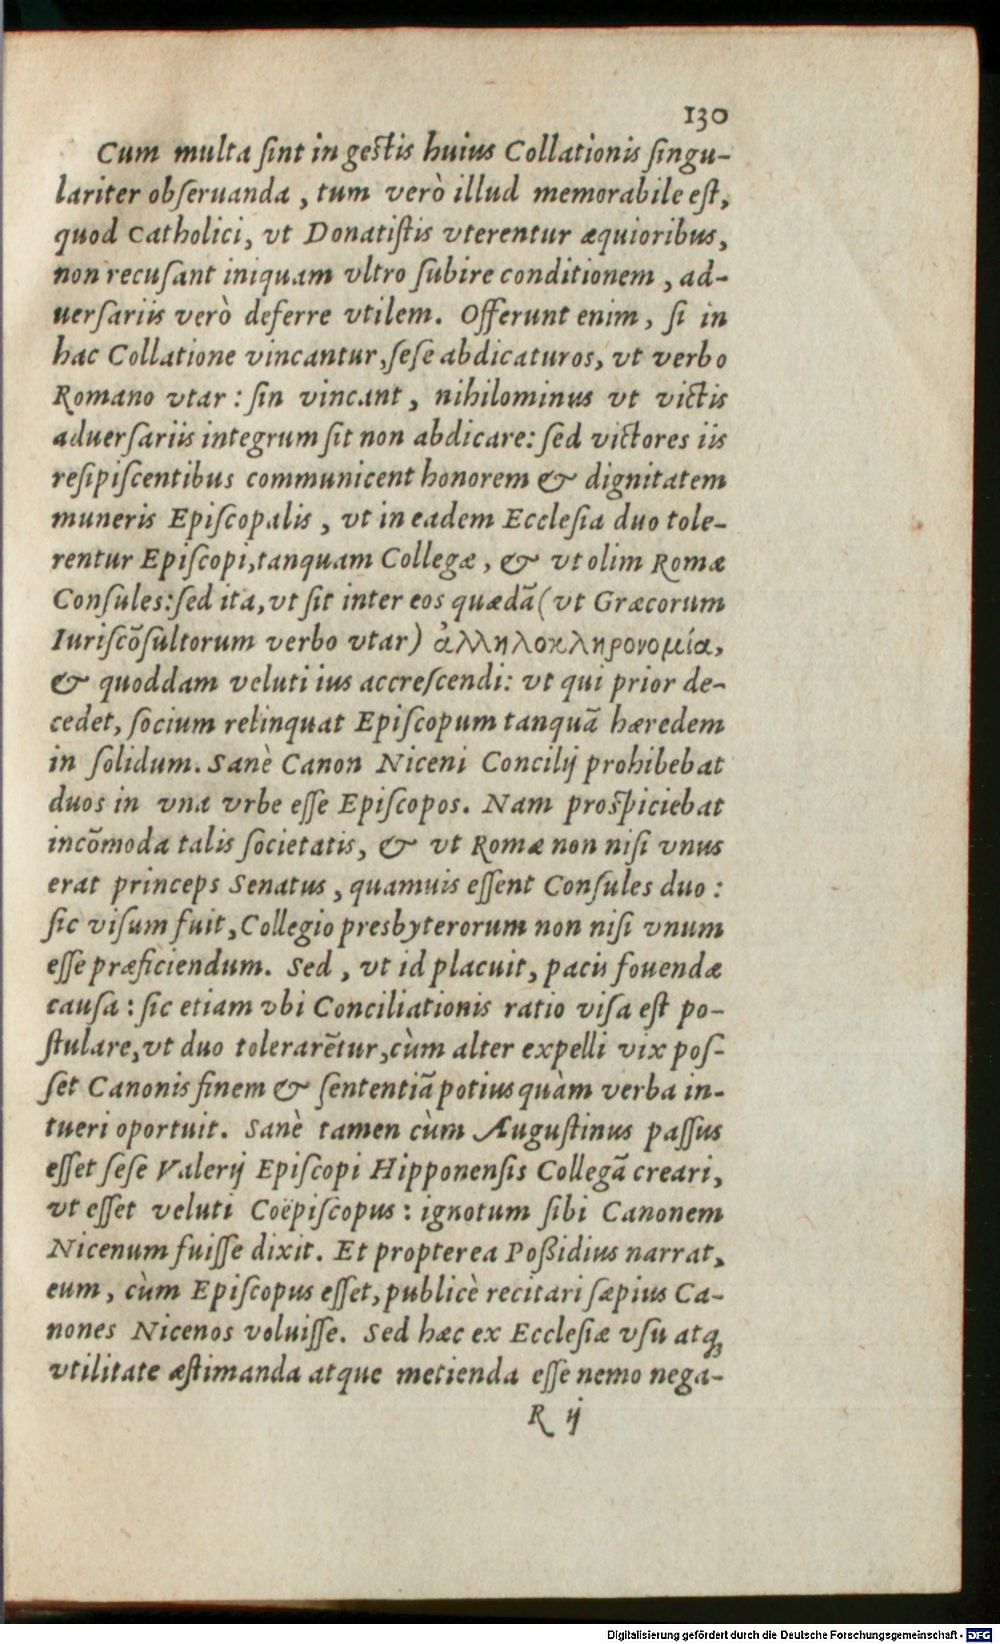 130
Cum multa ſint in geſtis huius Collationis ſingu-
lariter obſeruanda, tum verò illud memorabile eſt,
quod Catholici, vt Donatiſtis vterentur æquioribus,
non recuſant iniquam vltro ſubire conditionem, ad-
uerſariis verò deferre vtilem. Offerunt enim, ſi in
hac Collatione vincantur, ſeſe abdicaturos, vt verbo
Romano vtar: ſin vincant, nihilominus vt victis
aduerſariis integrum ſit non abdicare: ſed victores iis
reſipiſcentibus communicent honorem & dignitatem
muneris Epiſcopalis, vt in eadem Eccleſia duo tole-
rentur Epiſcopi, tanquam Collegæ, & vt olim Romæ
Conſules: ſed ita, vt ſit inter eos quædã (vt Græcorum
Iuriſcõſultorum verbo vtar) ἀλληλοκληρονομία,
& quoddam veluti ius accreſcendi: vt qui prior de-
cedet, ſocium relinquat Epiſcopum tanquã hæredem
in ſolidum. Sanè Canon Niceni Concilij prohibebat
duos in vna vrbe eſſe Epiſcopos. Nam proſpiciebat
incõmoda talis ſocietatis, & vt Romæ non niſi vnus
erat princeps Senatus, quamuis eſſent Conſules duo:
ſic viſum fuit, Collegio presbyterorum non niſi vnum
eſſe præficiendum. Sed, vt id placuit, pacis fouendæ
cauſa: ſic etiam vbi Conciliationis ratio viſa eſt po-
ſtulare, vt duo tolerarẽtur, cùm alter expelli vix poſ-
ſet Canonis finem & ſententiã potius quàm verba in-
tueri oportuit. Sanè tamen cùm Auguſtinus paſſus
eſſet ſeſe Valerij Epiſcopi Hipponenſis Collegã creari,
vt eſſet veluti Coëpiſcopus: ignotum ſibi Canonem
Nicenum fuiſſe dixit. Et propterea Poßidius narrat,
eum, cùm Epiſcopus eſſet, publicè recitari ſæpius Ca-
nones Nicenos voluiſſe. Sed hæc ex Eccleſiæ vſu atq;
vtilitate æſtimanda atque metienda eſſe nemo nega-
R ij
Digitalisierung gefördert durch die Deutsche Forschungsgemeinschaft - DFG